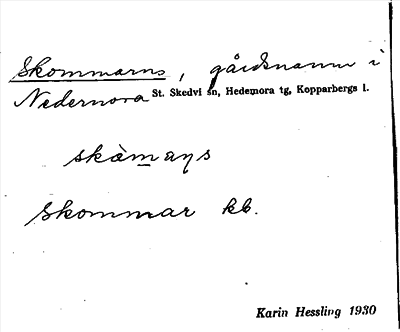 Skommarns, gårdsnamn i
Nedernora St. Skedvi sn, Hedemora tg, Kopparbergs l.
skòmaṇs
Skommar kb.
Karin Hessling 1930